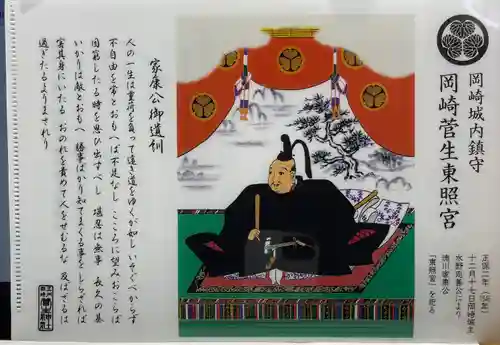 岡崎城内鎮守
岡崎菅生東照宮
十二月十七日岡崎城主
水野忠善公により
徳川家康公
「東照宮」を祀る
家康公御遺訓
人の一生は重荷を負うて遠き道をゆくが如し いそぐべからず
不自由を常とおもへば不足なし こころに望みおこらば
困窮したる時を思ひ出すべし 堪忍は無事 長久の基
いかりは敵とおもへ 勝事ばかり知てまくる事をしらざれば
害其身にいたる おのれを責めて人をせむるな 及ばざるは
過ぎたるよりまされり